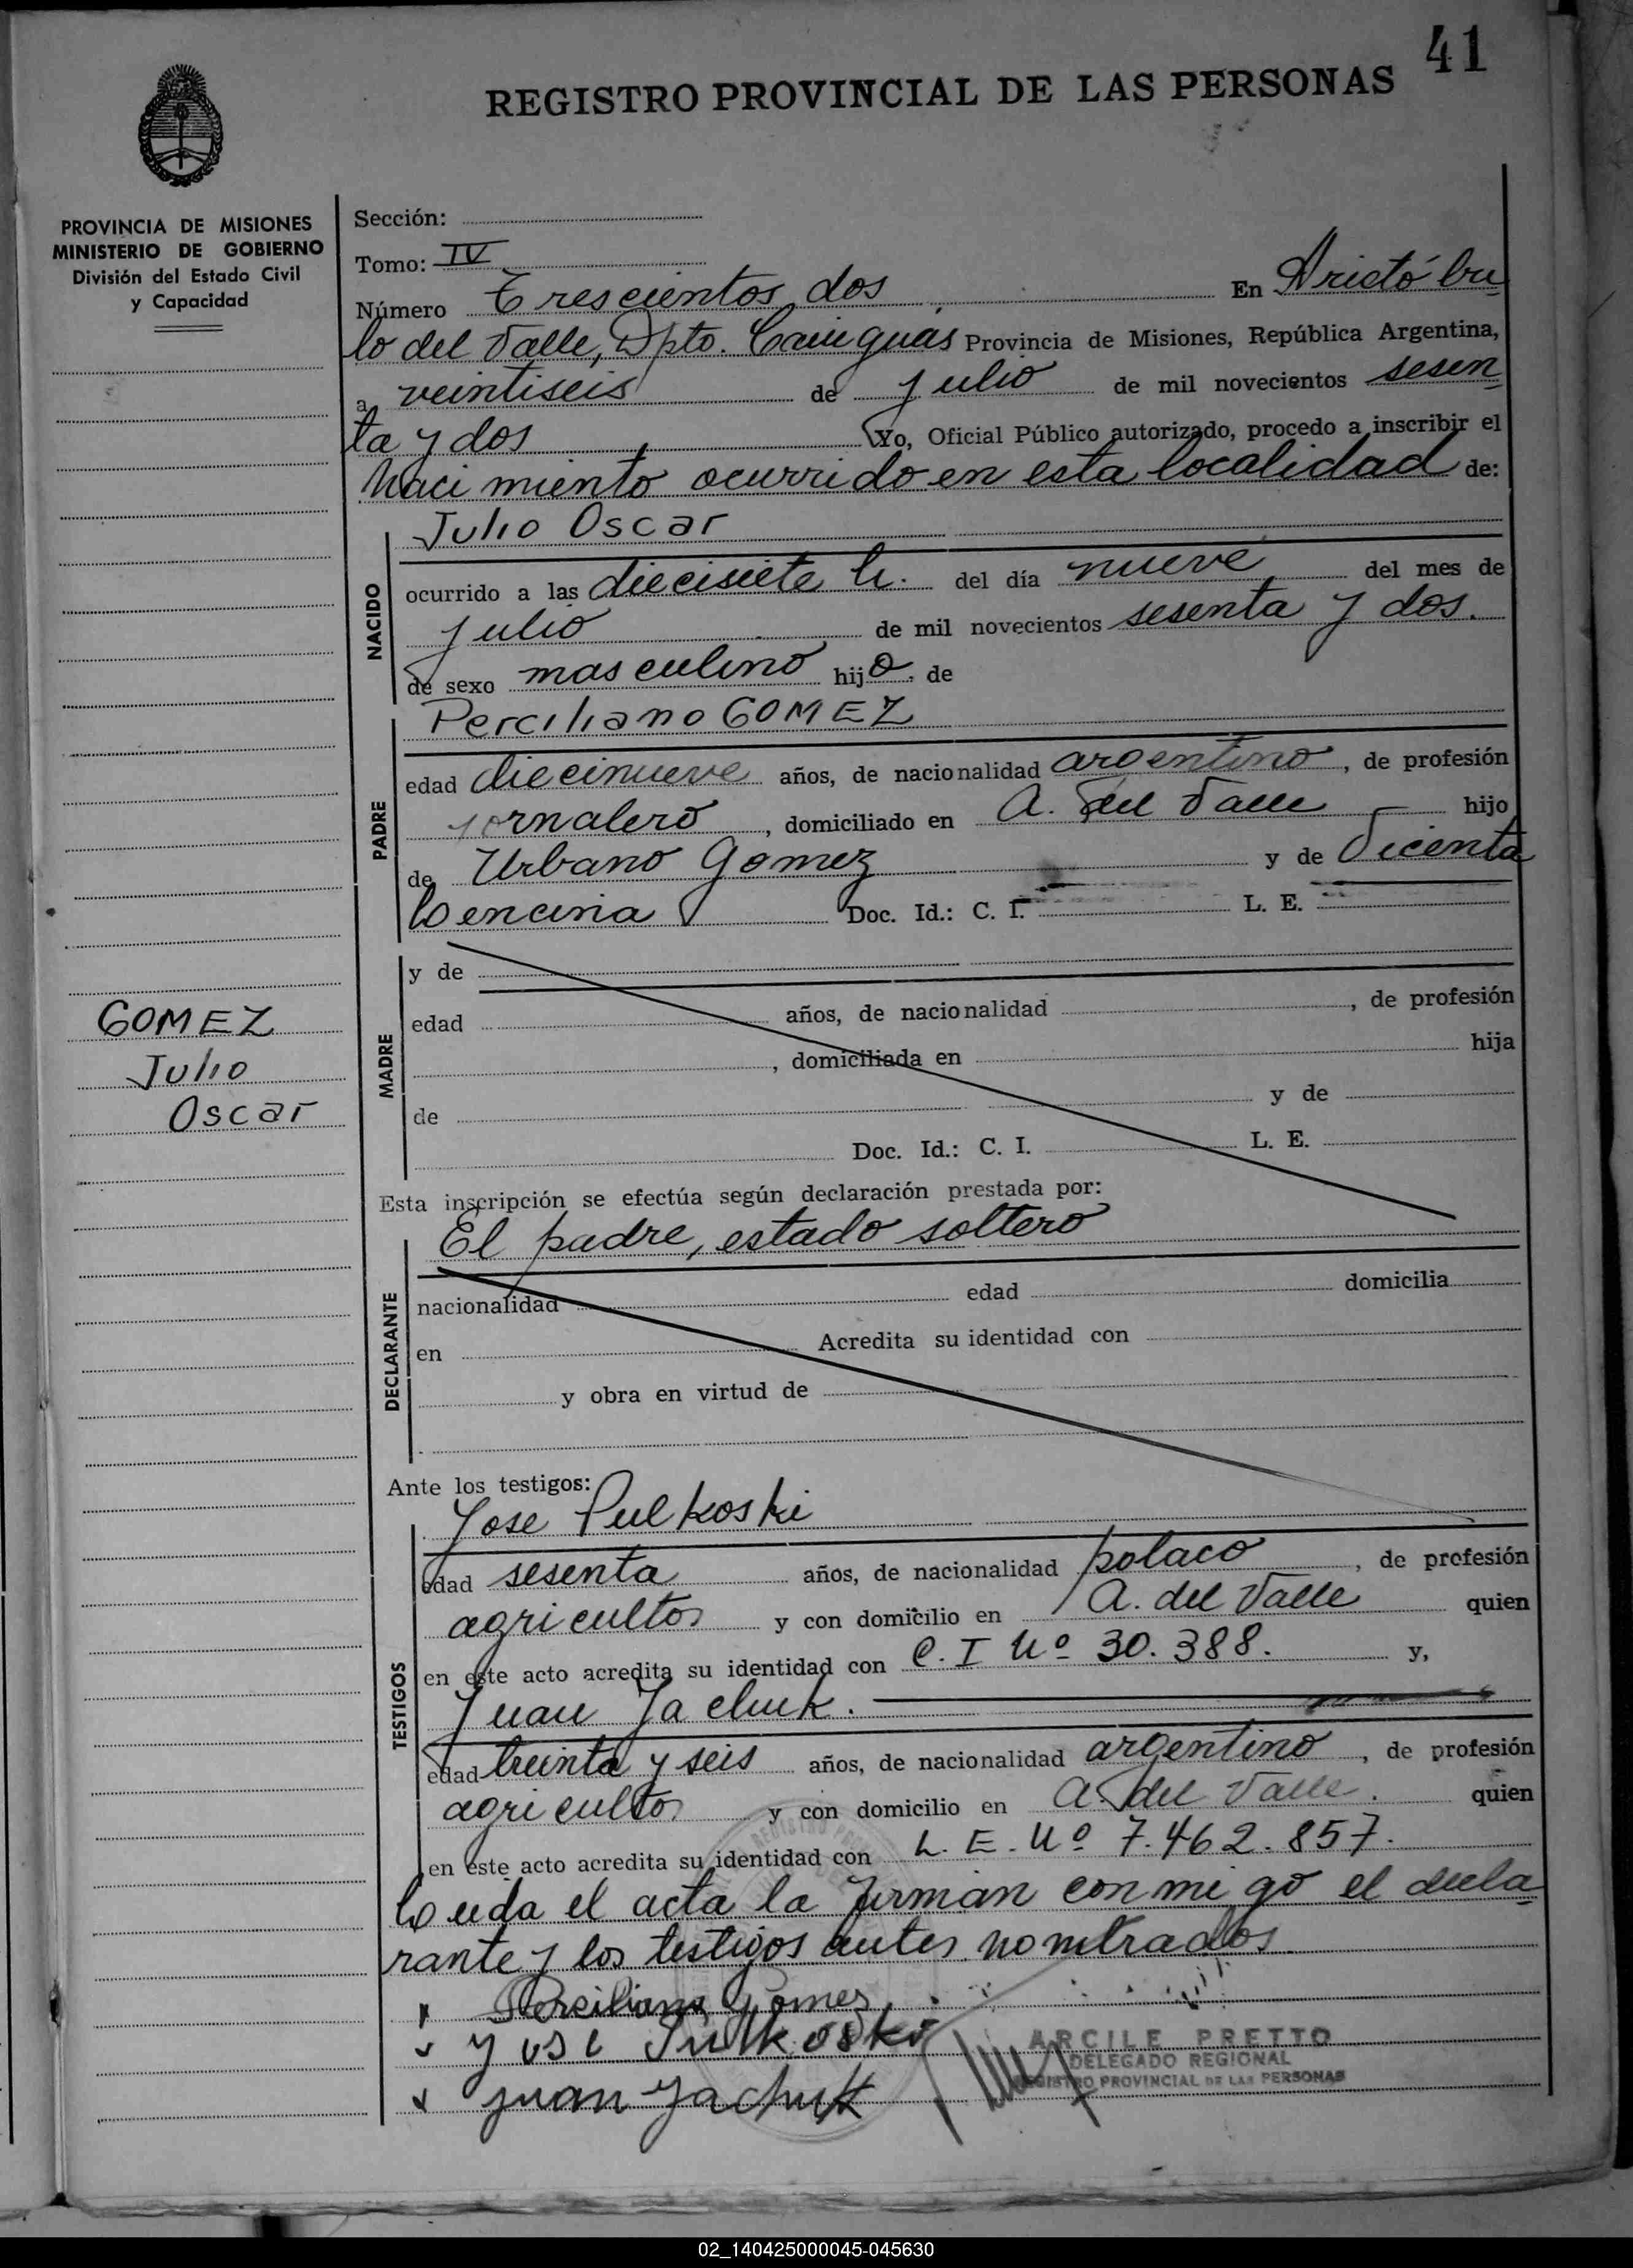 41
REGISTRO PROVINCIAL DE LAS PERSONAS
PROVINCIA DE MISIONES
MINISTERIO DE GOBIERNO
División del Estado Civil
y Capacidad
Sección:
Tomo: IV
Número Trescientos dos En Aristóbu
lo del Valle, Dpto. Cainguas Provincia de Misiones, República Argentina,
a veintiseis de julio de mil novecientos sesen
ta y dos Yo, Oficial Público autorizado, procedo a inscribir el
Nacimiento ocurrido en esta localidad de:
NACIDO
Julio Oscar
ocurrido a las diecisiete h. del día nueve del mes de
julio de mil novecientos sesenta y dos.
de sexo masculino hijo de
PADRE
Perciliano GOMEZ
edad diecinueve años, de nacionalidad argentino, de profesión
jornalero, domiciliado en A. del Valle hijo
de Urbano Gomez y de Vicenta
Doc. Id.: C. I. L. E.
MADRE
y de
edad años, de nacionalidad , de profesión
, domiciliada en hija
de y de
Doc. Id.: C. I. L. E.
GOMEZ
Julio
Oscar
Esta inscripción se efectúa según declaración prestada por:
DECLARANTE
El padre, estado soltero
nacionalidad edad domicilia
en Acredita su identidad con
y obra en virtud de
Ante los testigos:
TESTIGOS
Jose Pulkoski
edad sesenta años, de nacionalidad polaco, de profesión
agricultor y con domicilio en A. del Valle quien
en este acto acredita su identidad con C. I Nº 30.388. y,
Juan Jachuk.
edad treinta y seis años, de nacionalidad argentino, de profesión
agricultor y con domicilio en A. del Valle. quien
en este acto acredita su identidad con L. E. Nº 7.462.857.
Leida el acta la firman conmigo el decla
rante y los testigos antes nombrados
Perciliano Gomez
Jose Pulkoski
Juan Jachuk
ARCILE PRETTO
DELEGADO REGIONAL
REGISTRO PROVINCIAL DE LAS PERSONAS
02_140425000045-045630